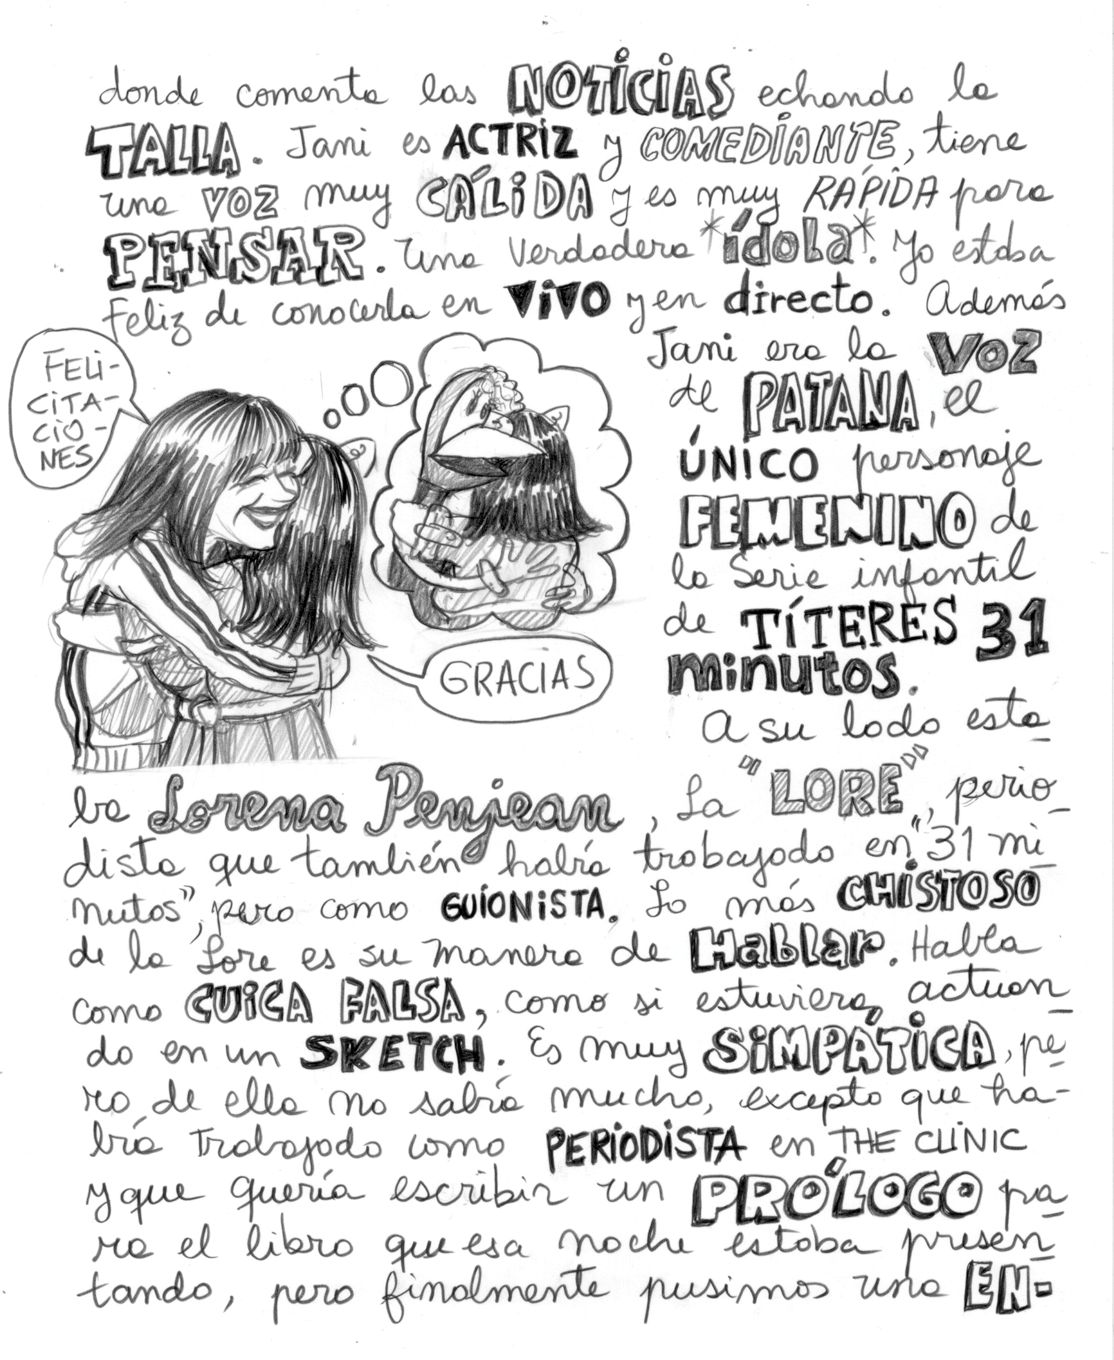 donde comenta las NOTICIAS echando la
TALLA. Jani es ACTRIZ y COMEDIANTE, tiene
una VOZ muy CÁLIDA y es muy RÁPIDA para
PENSAR. Una verdadera *ídola*. Yo estaba
feliz de conocerla en VIVO y en directo. Además
Jani era la VOZ
de PATANA, el
ÚNICO personaje
FEMENINO de
la serie infantil
de TÍTERES 31
minutos.
FELI-
CITA-
CIO-
NES
GRACIAS
A su lado esta-
ba Lorena Penjean, La "LORE", perio-
dista que también había trabajado en "31 mi-
nutos", pero como GUIONISTA. Lo más CHISTOSO
de la Lore es su manera de Hablar. Habla
como CUICA FALSA, como si estuviera actuan-
do en un SKETCH. Es muy SIMPÁTICA, pe-
ro de ella no sabía mucho, excepto que ha-
bía trabajado como PERIODISTA en THE CLINIC
y que quería escribir un PRÓLOGO pa-
ra el libro que esa noche estaba presen-
tando, pero finalmente pusimos una EN-